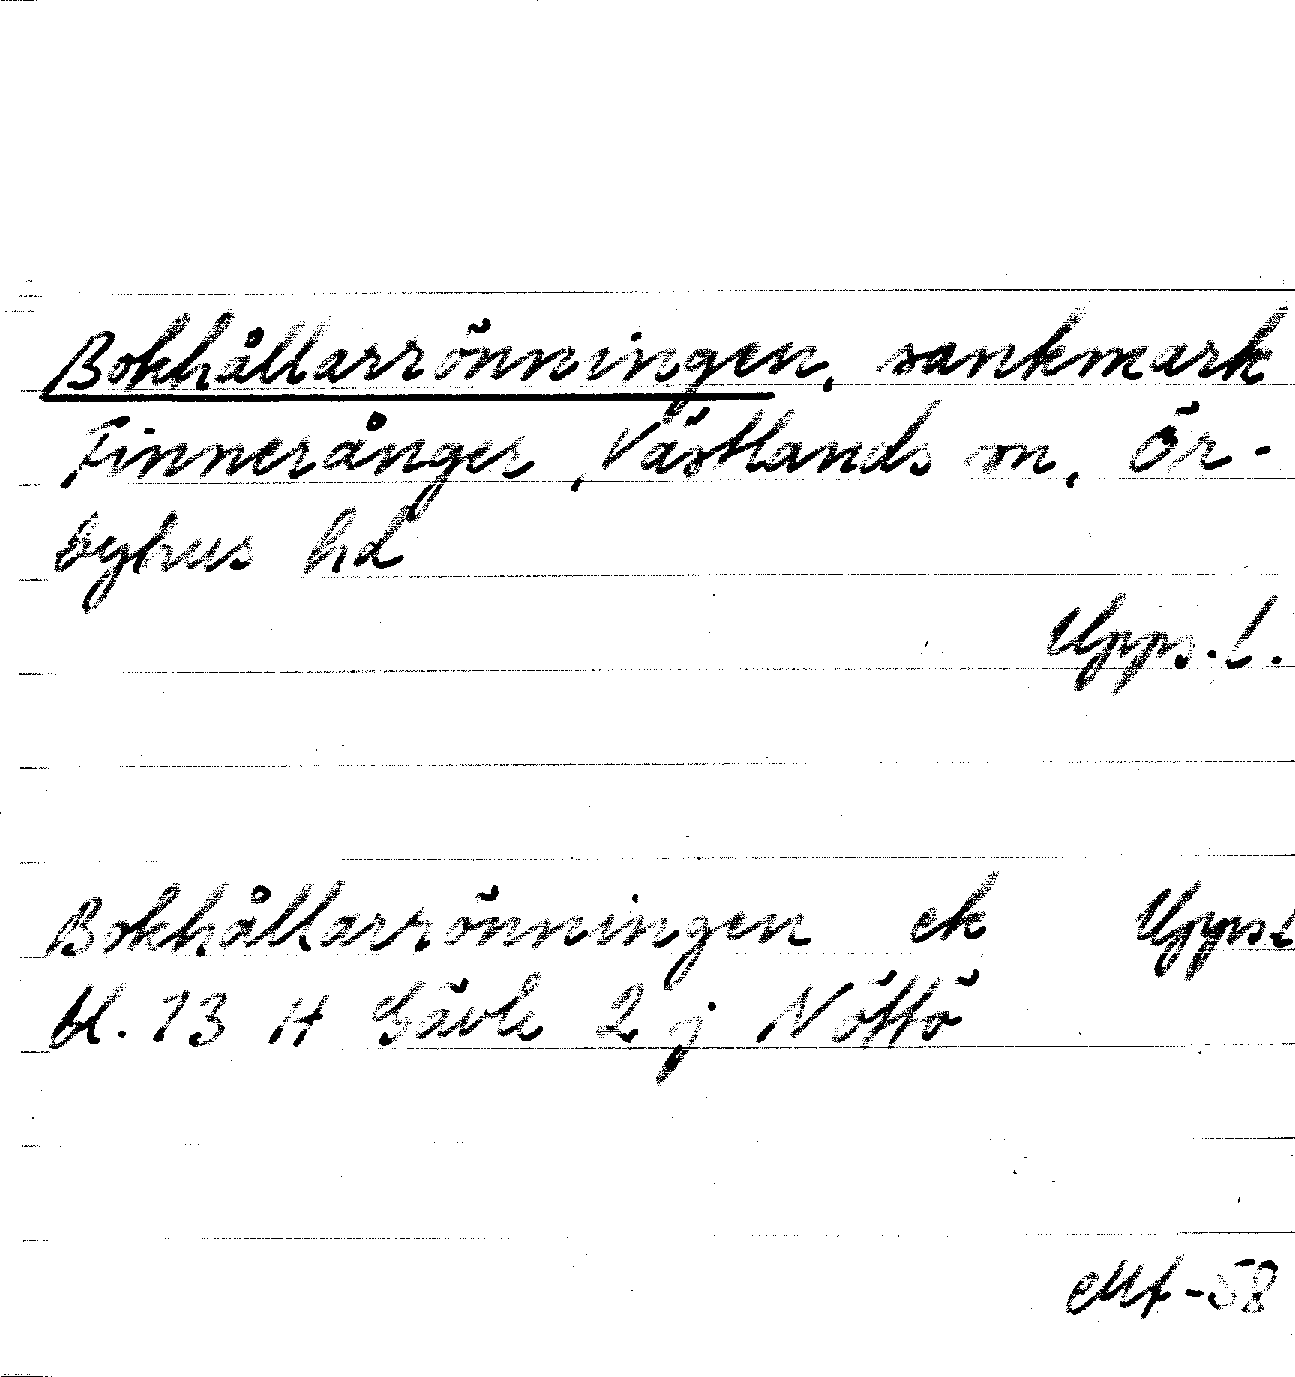 Bokhållarrönningen, sankmark
Finneränger, Västlands sn, Ör-
byhus hd
Upps. l.
Bokhållarrönningen ek Upps l
bl. 13 H Gävle 2 j Nöttö
-58